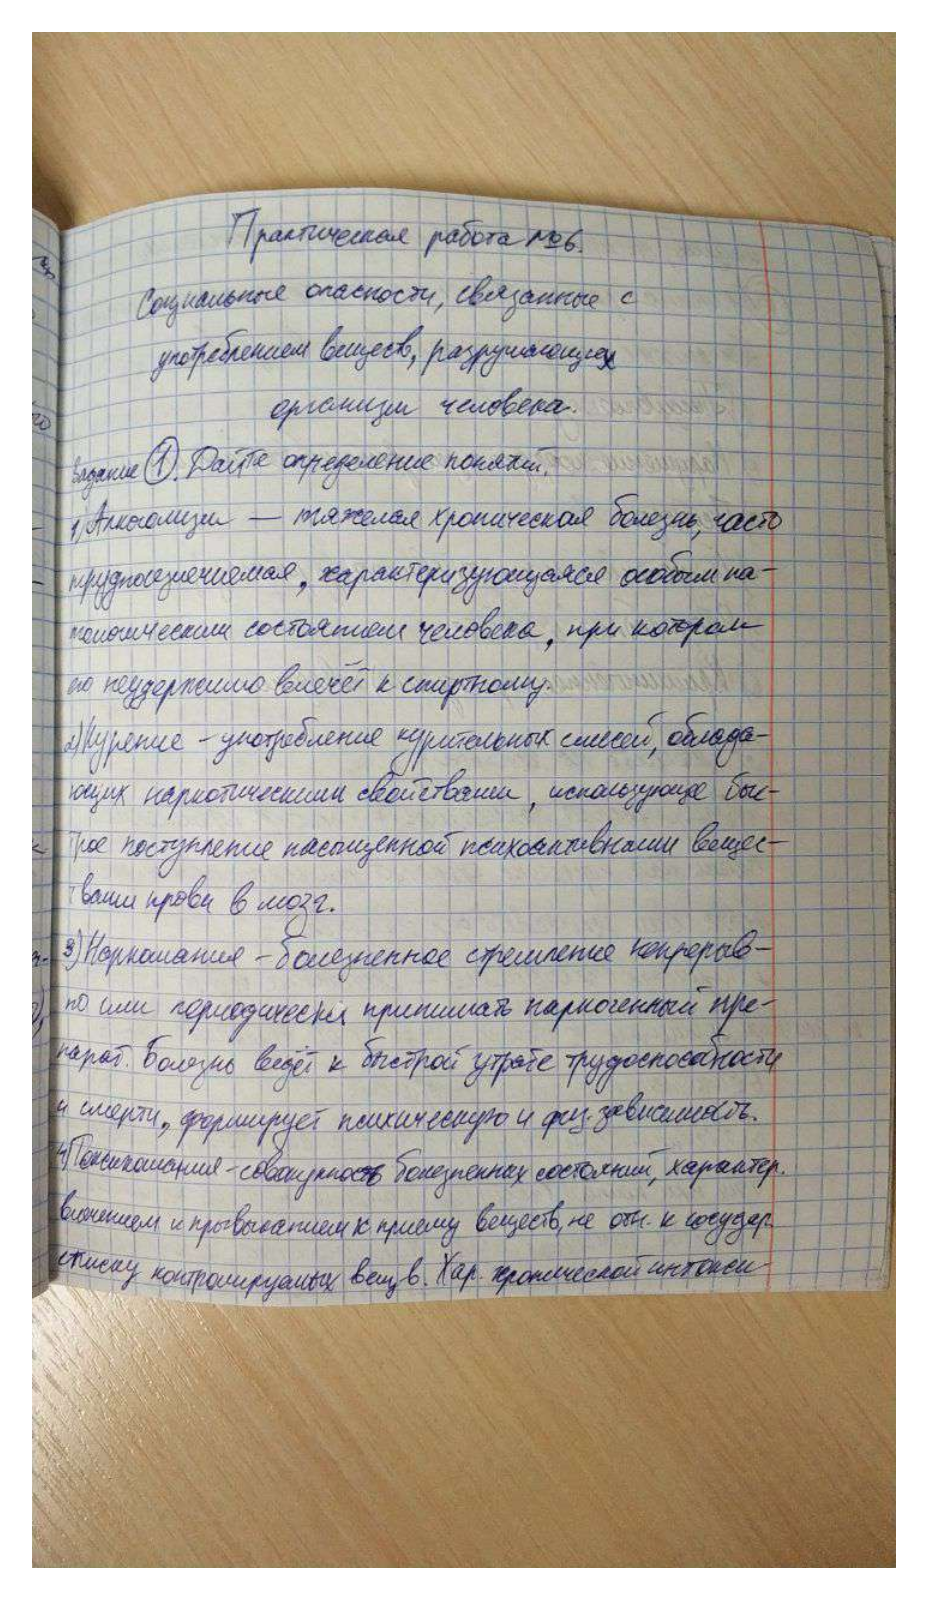 Практическая работа №6.
Социальные опасности, связанные с
употреблением веществ, разрушающих
организм человека.
Задание 1. Дайте определение понятий.
1) Алкоголизм — тяжелая хроническая болезнь, часто
трудноизлечимая, характеризующаяся особым па-
тологическим состоянием человека, при котором
его неудержимо влечёт к спиртному.
2) Курение - употребление курительных смесей, облада-
ющих наркотическими свойствами, использующее быс-
трое поступление насыщенной психоактивными вещес-
твами крови в мозг.
3) Наркомания - болезненное стремление непрерыв-
но или периодически принимать наркогенный пре-
парат. Болезнь ведёт к быстрой утрате трудоспособности
и смерти, формирует психическую и физ. зависимость.
4) Токсикомания - совокупность болезненных состояний, характер.
влечением и привыканием к приему веществ, не отн. к государ.
списку контролируемых вещ в. Хар. хронической интокси-